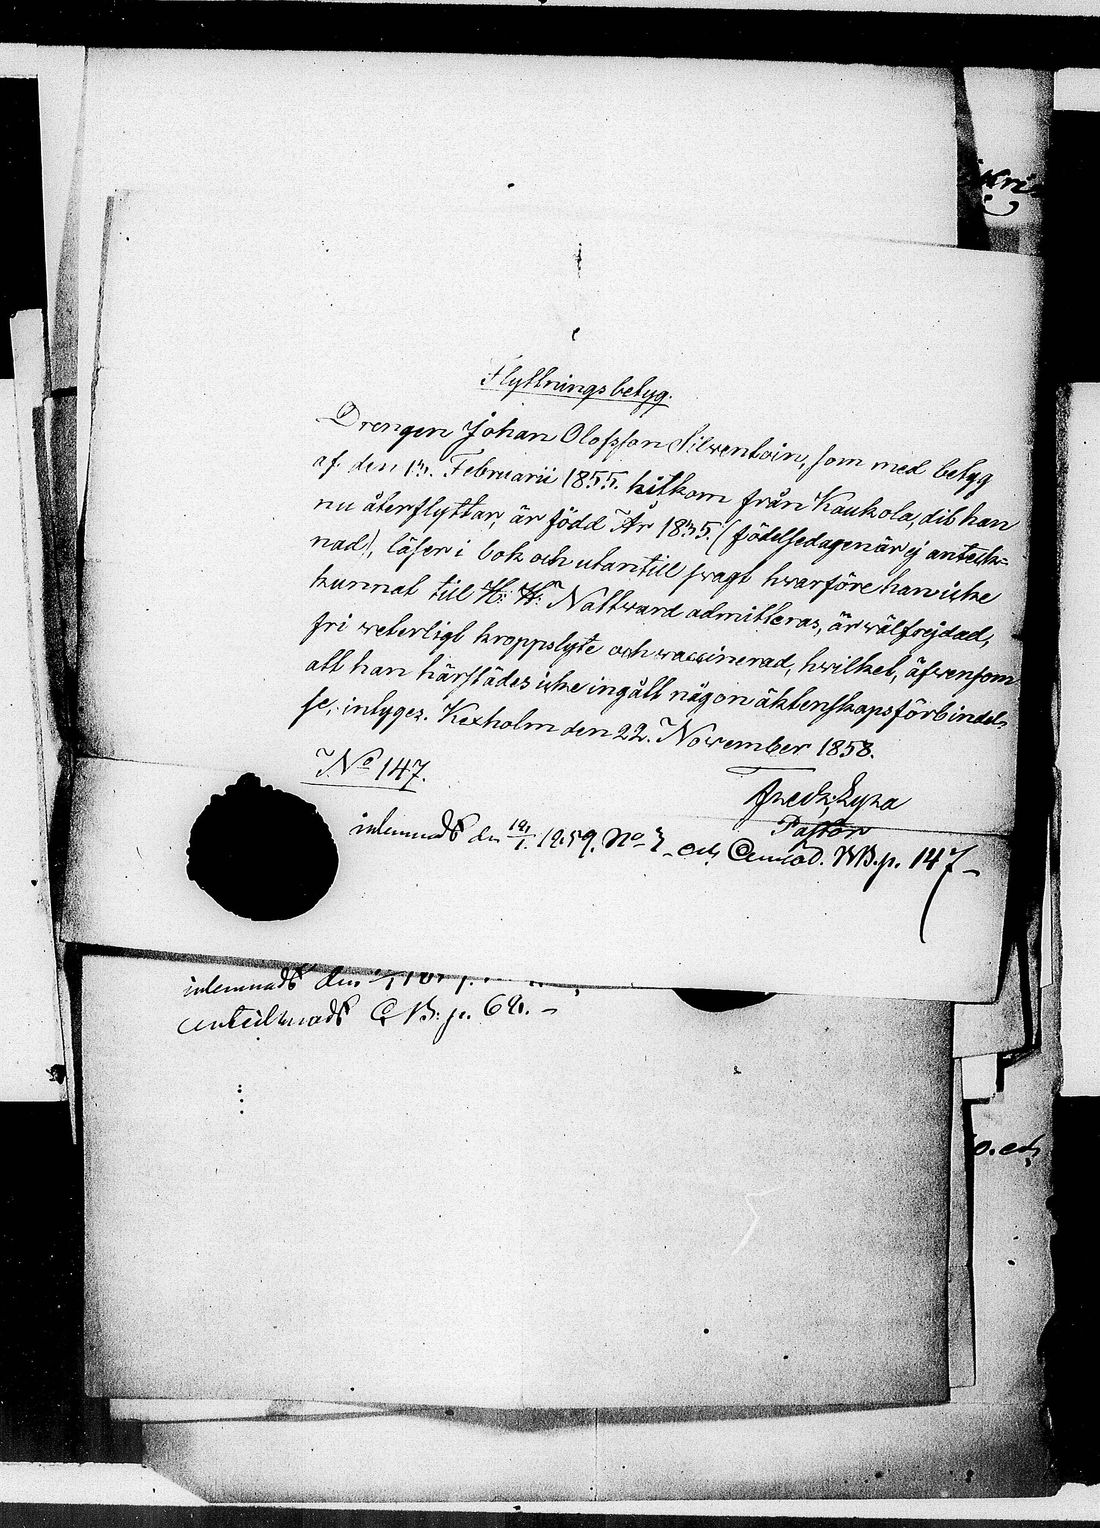 Flyttningsbetyg.
Drengen Johan Olofsson Silwentoin, som med betyg
af den 13. Februarii 1855. hitkom från Kaukola, dit han
nu återflyttar, är född År 1835. (födelsedagen är ej anteck-
nad), läser i bok och utantill svagt hwarföre han icke
kunnat till H: H: Nattward admitteras, är wälfrejdad,
fri weterligt kroppslyte och waccinerad, hwilket, äfwensom
att han härstädes icke ingått någon äktenskapsförbindel-
se, intyges. Kexholm den 22. November 1858.
No 147.
Pastor
inlemnadt den 1859. No 3 och p. 147
inlemnadt den
antecknadt C. B: p.